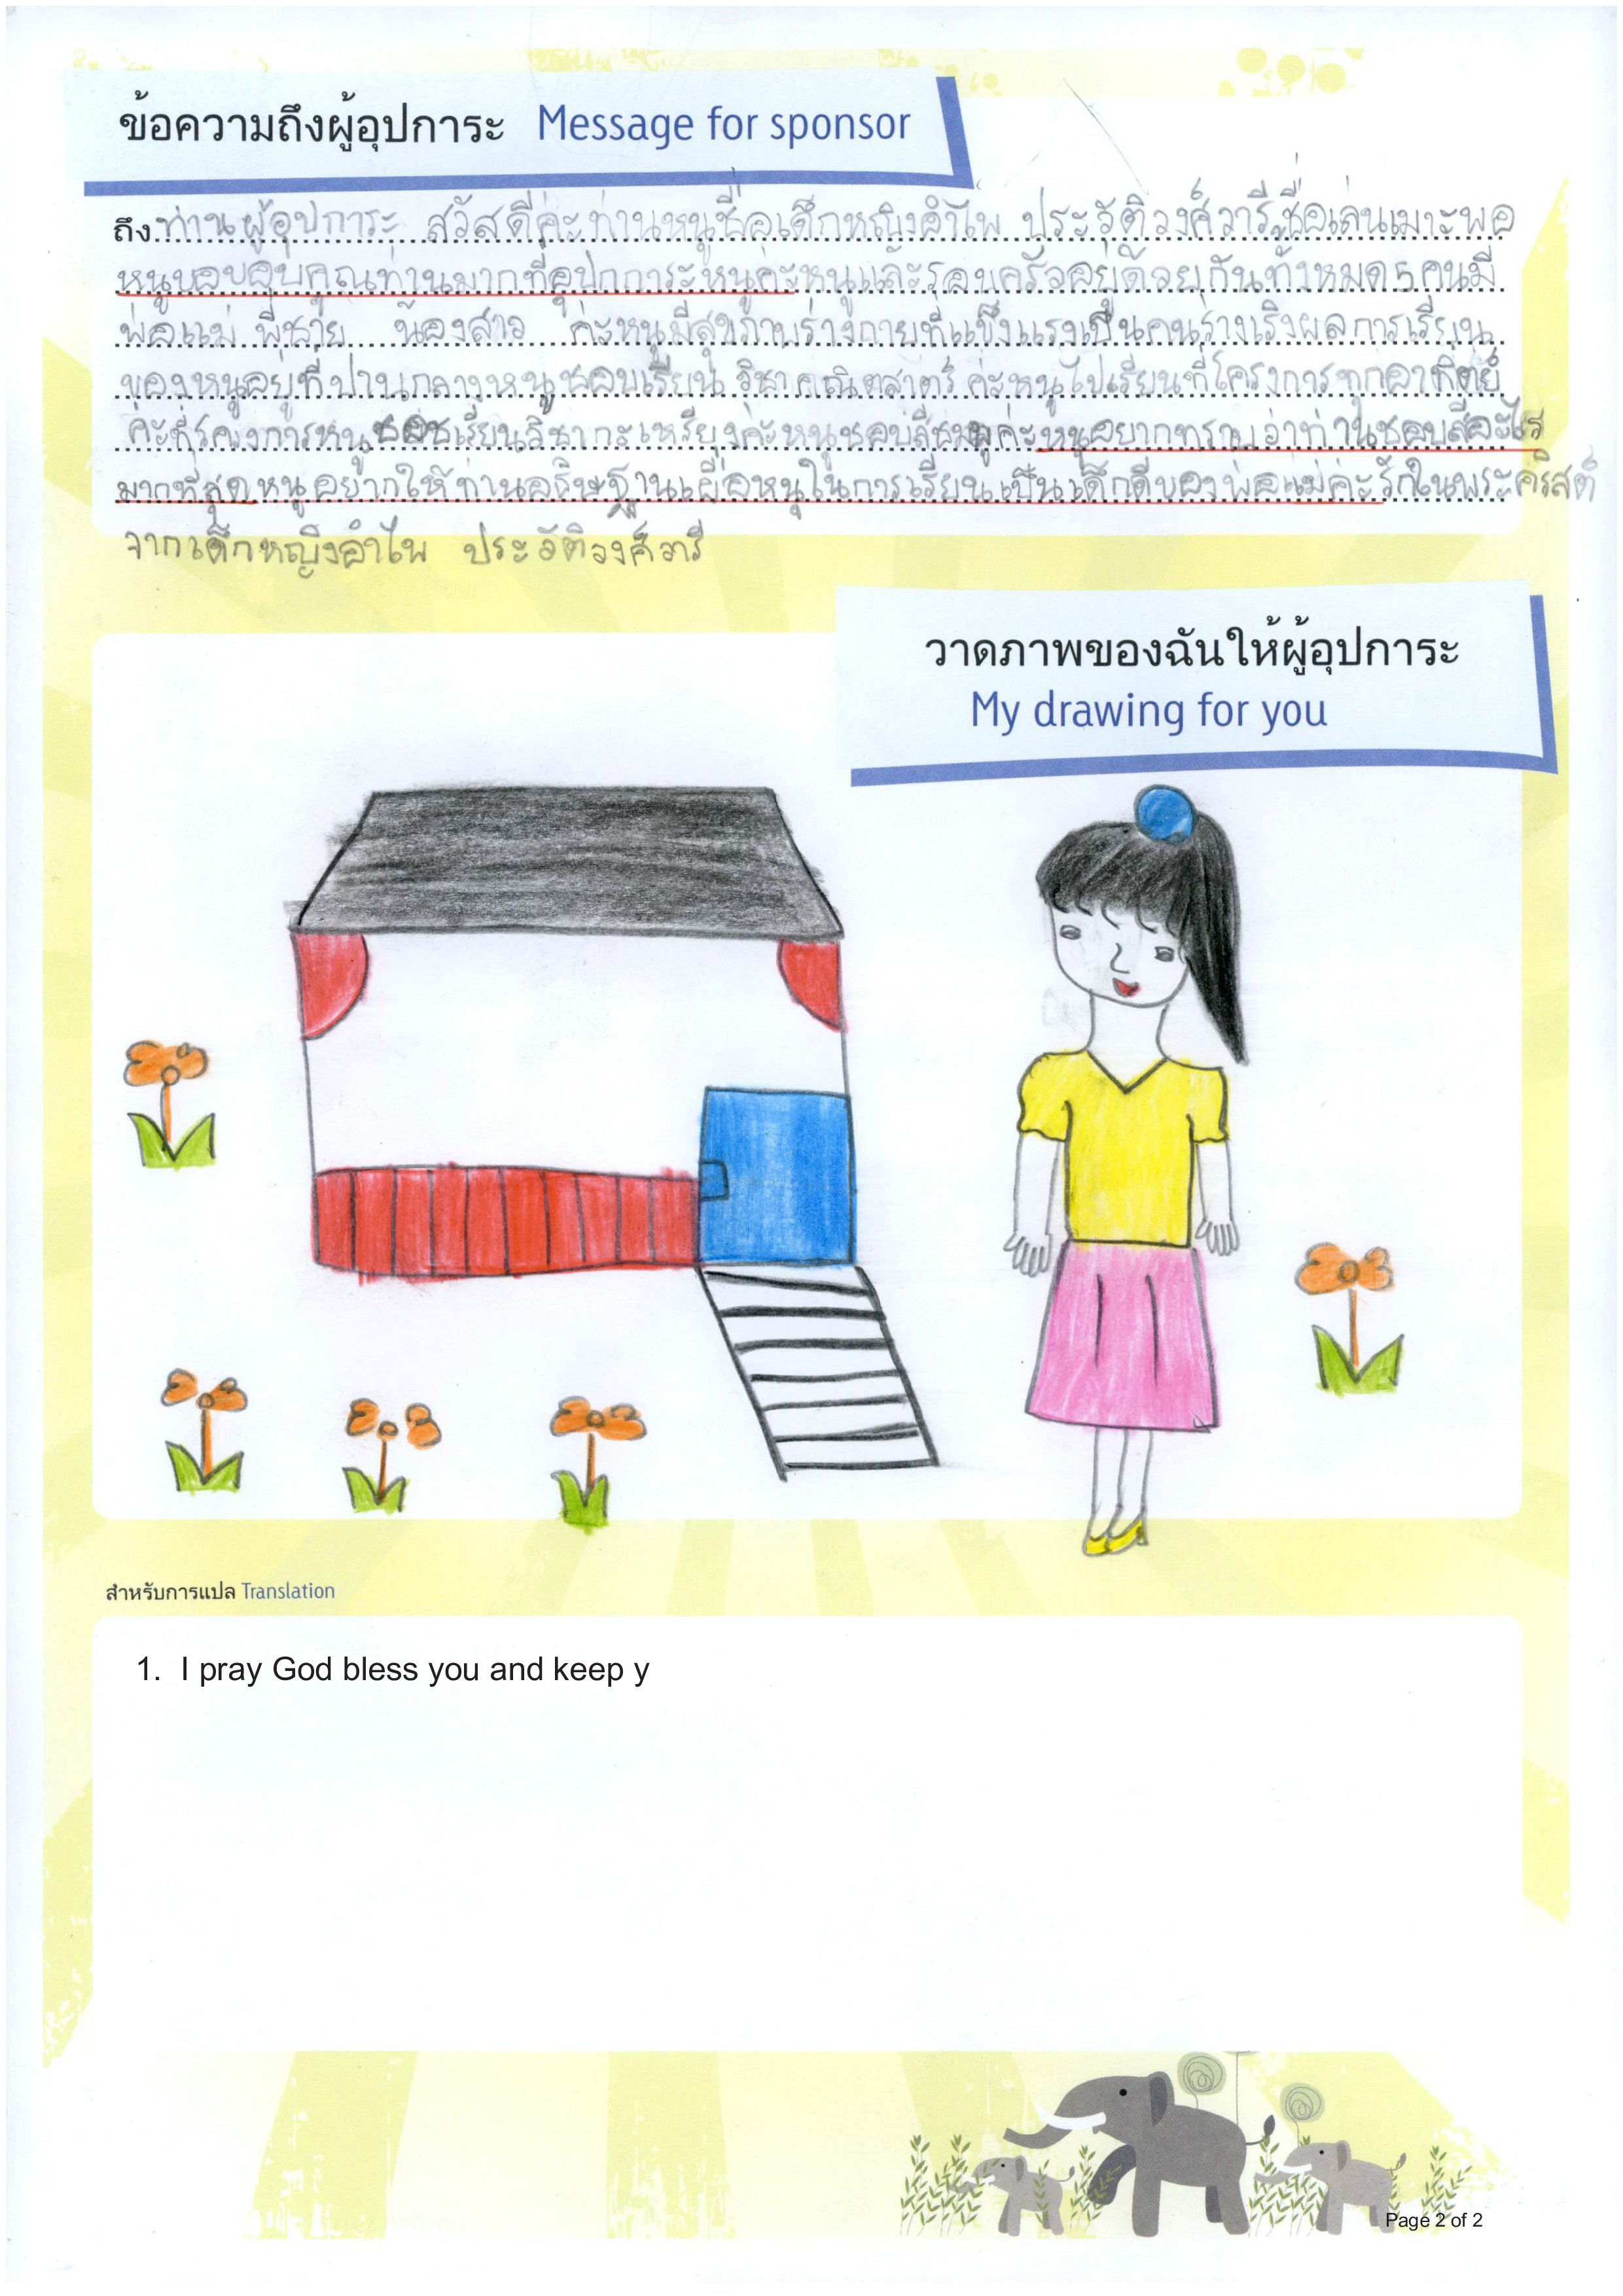 ข้อความถึงผู้อุปการะ Message for sponsor
ถึง ท่านผู้อุปการะ สวัสดีค่ะท่านหนูชื่อเด็กหญิงอำไพ ประวัติวงศ์วารี ชื่อเล่นเมาะพอ
หนูขอบคุณท่านมากที่อุปการะหนูค่ะหนูและครอบครัวอยู่ด้วยกันทั้งหมด 5 คนมี
พ่อแม่ พี่ชาย น้องสาว ค่ะหนูมีสุขภาพร่างกายที่แข็งแรงเป็นคนร่างเริงผลการเรียน
ของหนูอยู่ที่ปานกลางหนูชอบเรียนวิชาคณิตสาตร์ค่ะหนูไปเรียนที่โครงการทุกอาทิตย์
ค่ะที่โครงการหนูชอบเรียนวิชากะเหรี่ยงค่ะหนูชอบสีชมพูค่ะหนูอยากทราบว่าท่านชอบสีอะไร
มากที่สุดหนูอยากให้ท่านอธิษฐานเผื่อหนูในการเรียนเป็นเด็กดีของพ่อแม่ค่ะรักในพระคริสต์
จากเด็กหญิงอำไพ ประวัติวงศ์วารี
วาดภาพของฉันให้ผู้อุปการะ
My drawing for you
สำหรับการแปล Translation
1. I pray God bless you and keep y
Page 2 of 2